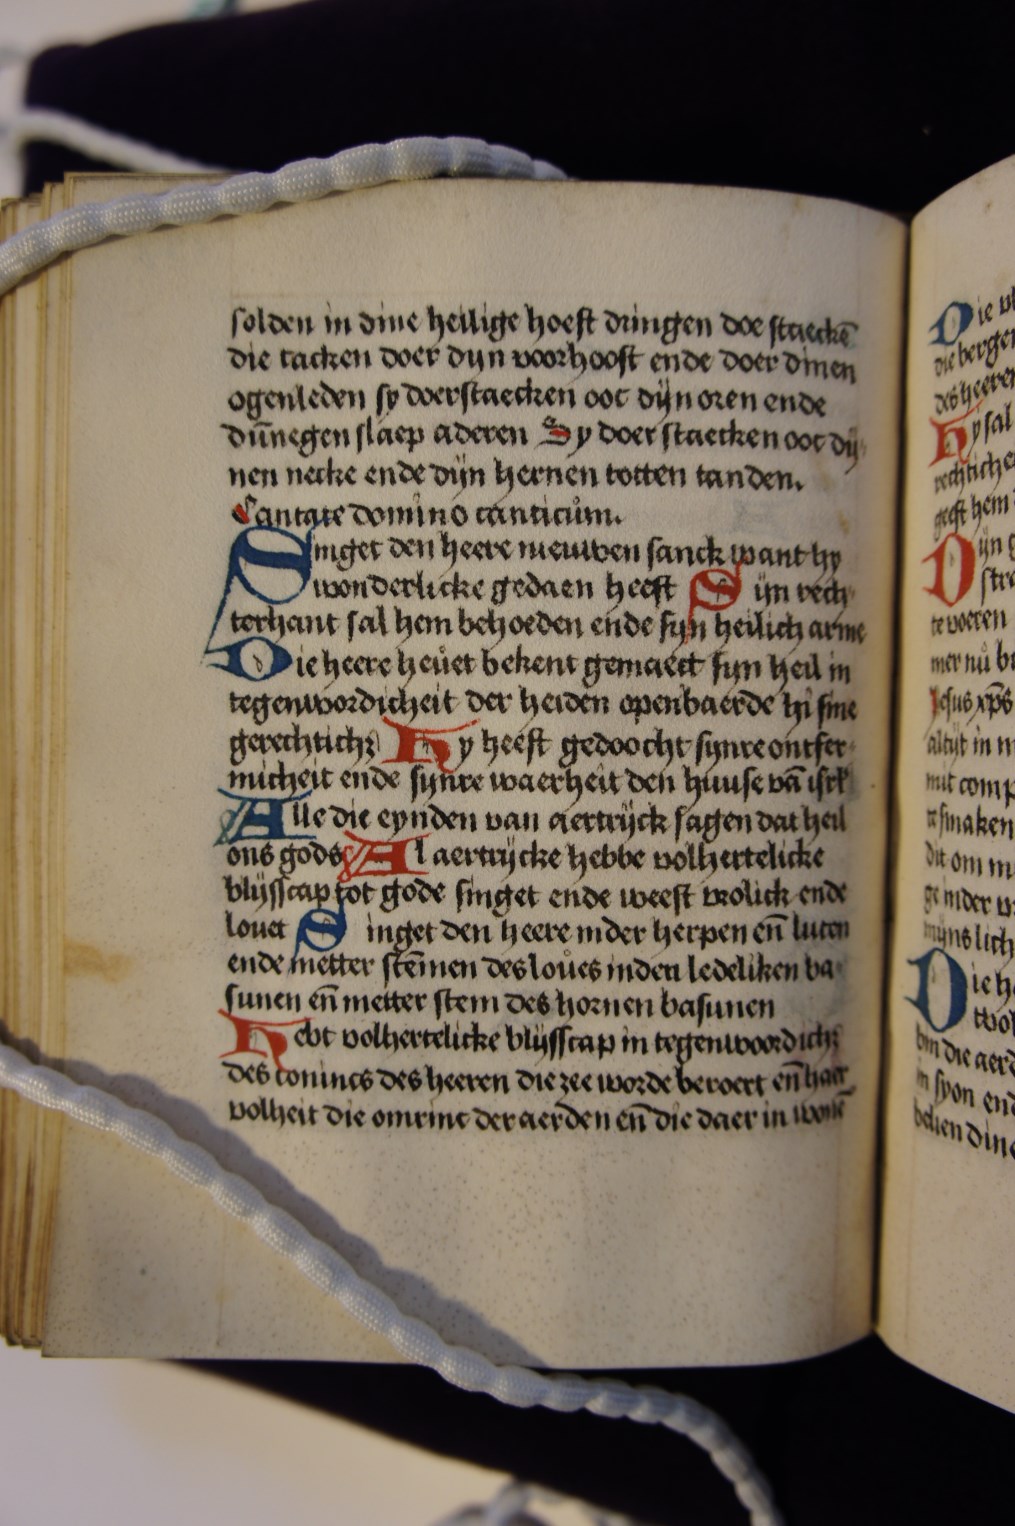 solden in dine heilige hoeft dringen doe staeckē
die tacken doer dyn voorhooft ende doer dinen
ogenleden sy doerstaecken ooc dÿn oren ende
dūnegen slaep aderen Sy doer staecken ooc dÿ
nen necke ende dÿn hernen totten tanden.
Cantate domino canticum.
Singet den heere nieuwen sanck want hy
wonderlicke gedaen heeft Sijn rech
terhant sal hem behoeden ende syn heilich arme
Die heere heuet bekent gemaect syn heil in
tegenwoordicheit der heiden openbaerde hi sine
gerechtich; Hy heeft gedoocht synre ontfer
micheit ende synre waerheit den huuse vā isrl
Alle die eynden van aertrÿck sagen dat heil
ons gods Al aertrÿcke hebbe volhertelicke
blÿsscap tot gode singet ende weest vrolick ende
louet Singet den heere inder herpen eñ luten
ende metter stemen des loues inden ledeliken ba
sunen eñ metter stem des hornen basunen
Hebt volhertelicke blÿsscap in tegenwoordich;
des conincs des heeren die zee worde beroert eñ haer
volheit die omrinc der aerden eñ die daer in wonē
Die
die berge
des heere
Hy sal
rechtiche
geeft hem
Dijn
te voeren
mer nu
Jesus xp̄s
altijt in
mit comp
smaken
dit om
mijns lich
Die
bin die aer
in syon en